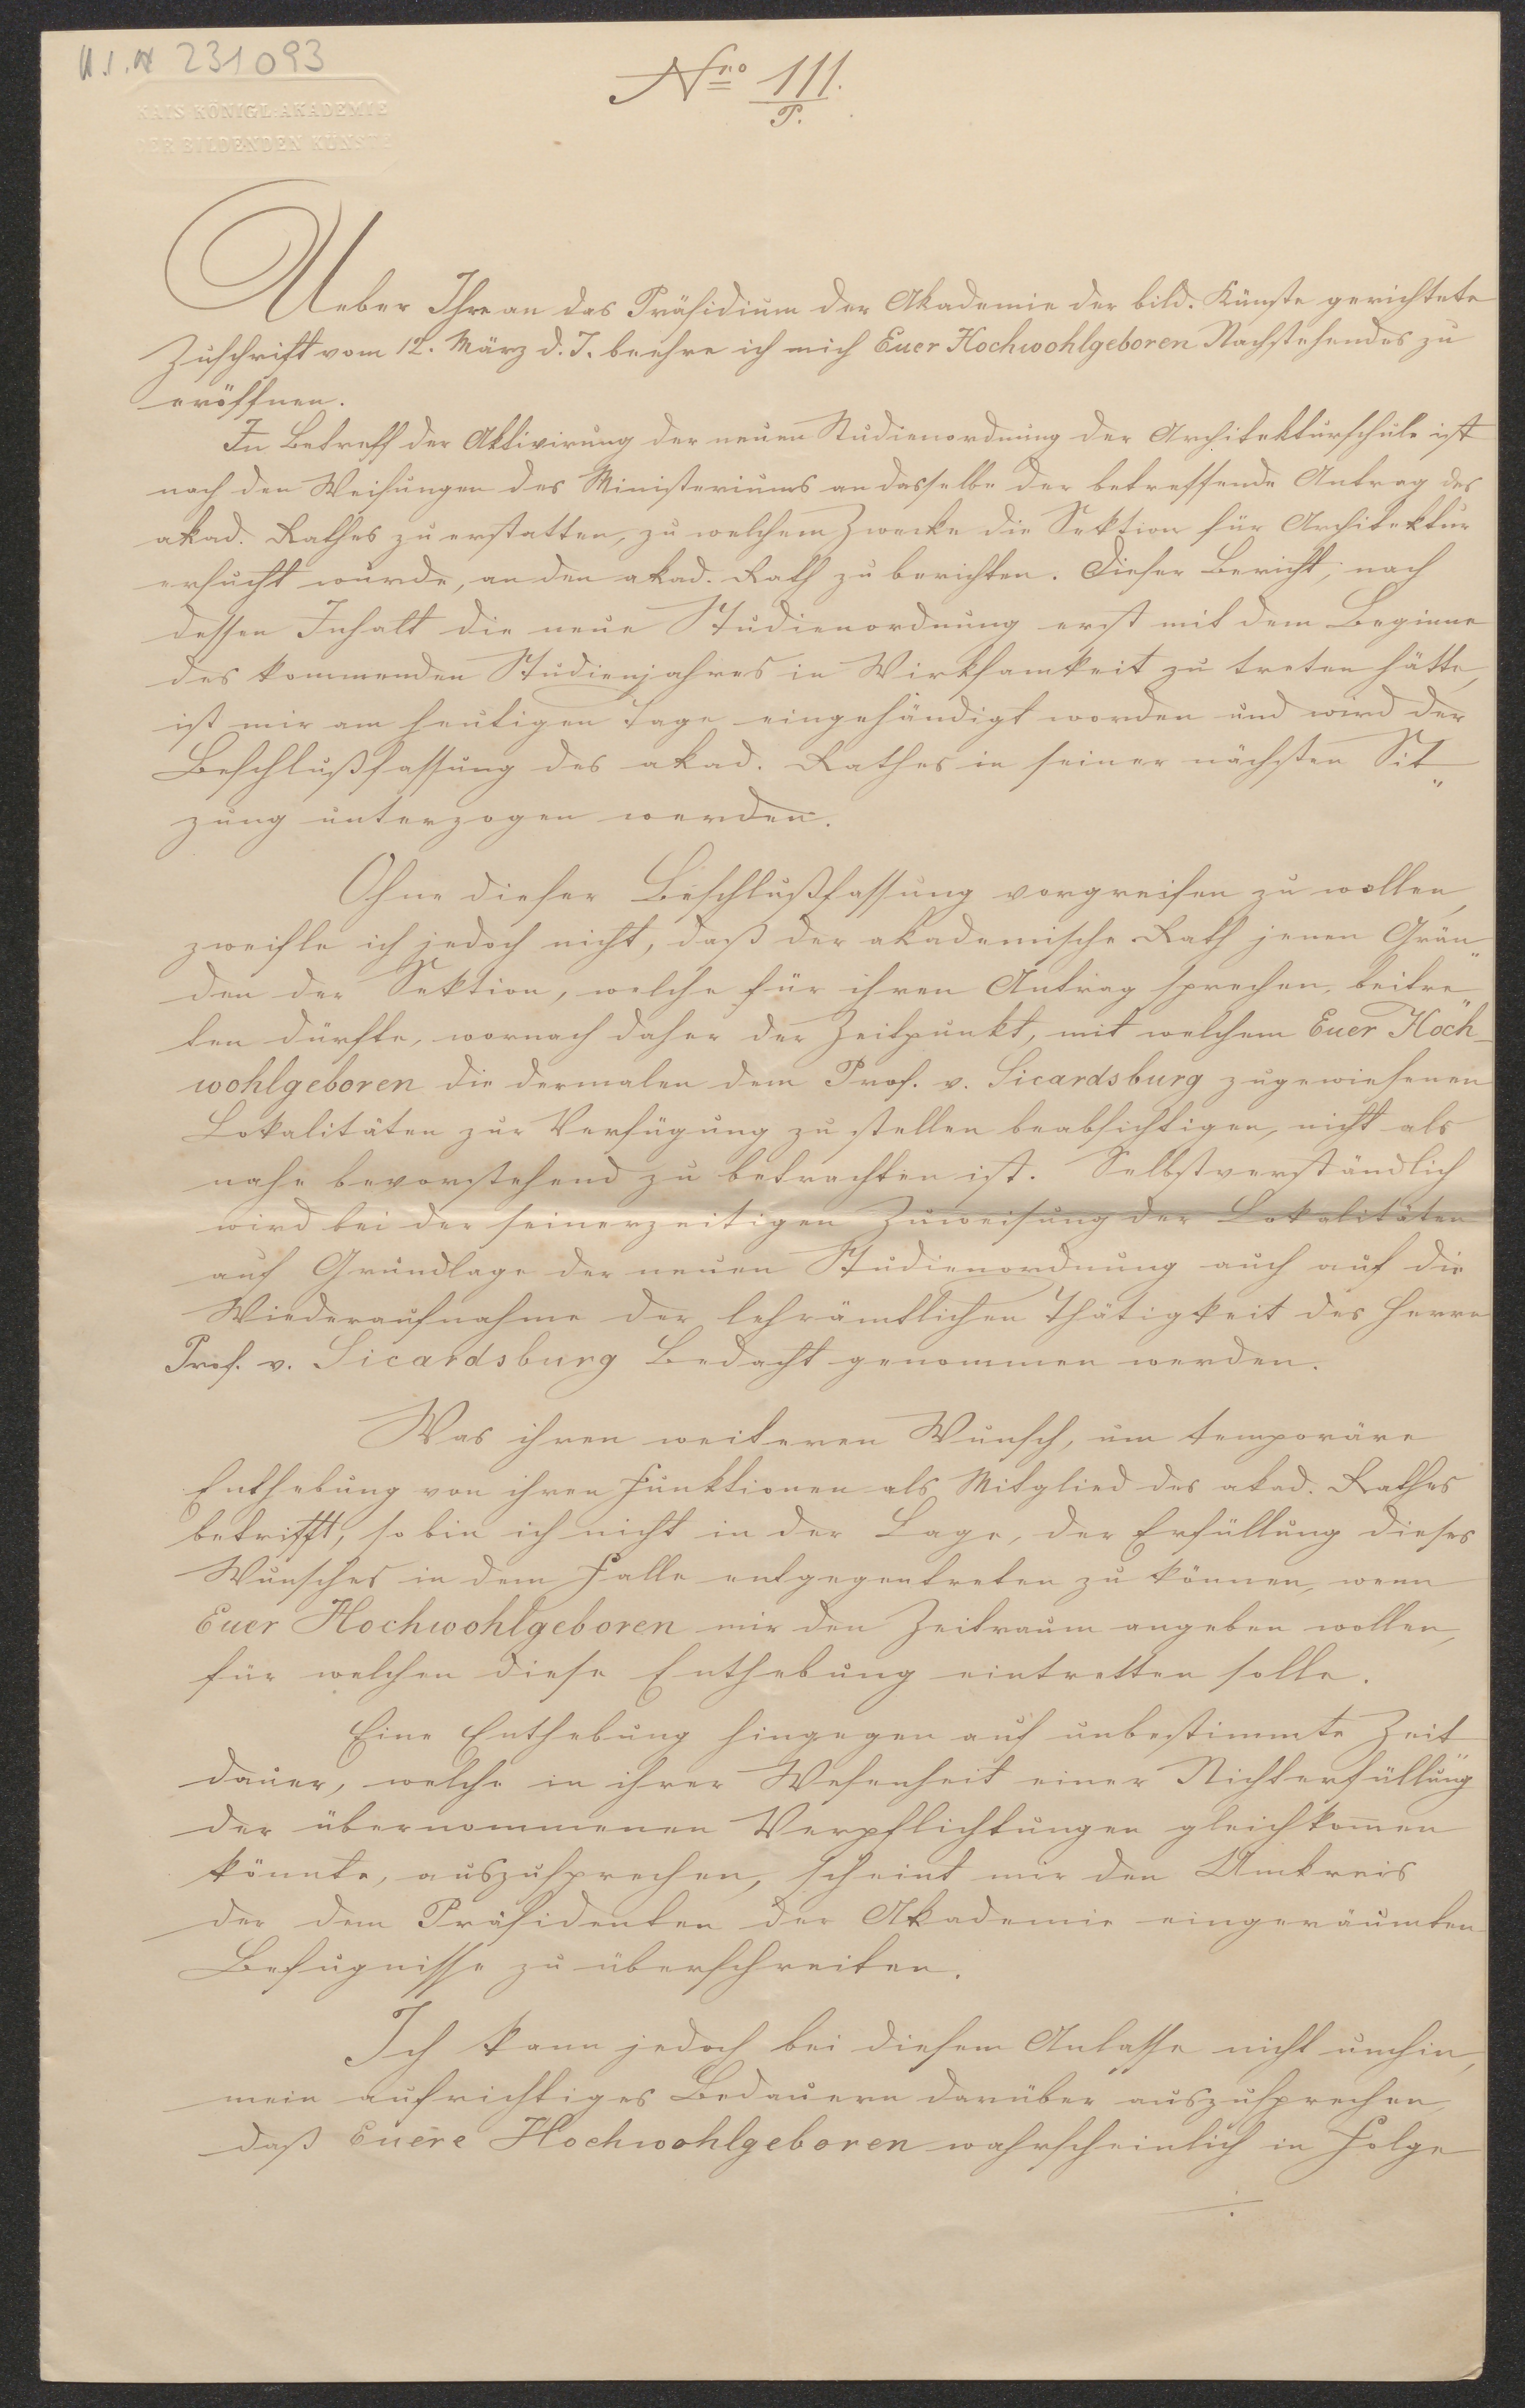 H.I.N 231093
KAIS. KÖNIGL. AKADEMIE
DER BILDENDEN KÜNSTE
Nro 111.
P.
Ueber Ihre an das Präsidium der Akademie der bild. Künste gerichtete
Zuschrift vom 12. März d. J. beehre ich mich Euer Hochwohlgeboren Nachstehendes zu
eröffnen.
In Betreff der Aktivirung der neuen Studienordnung der Architekturschule ist
nach den Weisungen des Ministeriums an dasselbe der betreffende Antrag des
akad. Rathes zu erstatten, zu welchem Zwecke die Sektion für Architektur
ersucht wurde, an den akad. Rath zu berichten. Dieser Bericht, nach
dessen Inhalt die neue Studienordnung erst mit dem Beginne
des kommenden Studienjahres in Wirksamkeit zu treten hätte,
ist mir am heutigen Tage eingehändigt worden und wird der
Beschlußfassung des akad. Rathes in seiner nächsten Sit„
zung unterzogen werden.
Ohne dieser Beschlußfassung vorgreifen zu wollen,
zweifle ich jedoch nicht, daß der akademische Rath jenen Grün„
den der Sektion, welche für ihren Antrag sprechen, beitre„
ten dürfte, wornach daher der Zeitpunkt, mit welchem Euer Hoch-
wohlgeboren die dermalen dem Prof. v. Sicardsburg zugewiesenen
Lokalitäten zur Verfügung zu stellen beabsichtigen, nicht als
nahe bevorstehend zu betrachten ist. Selbstverständlich
wird bei der seinerzeitigen Zuweisung der Lokalitäten
auf Grundlage der neuen Studienordnung auch auf die
Wiederaufnahme der lehrämtlichen Thätigkeit des Herrn
Prof. v. Sicardsburg Bedacht genommen werden.
Was ihren weiteren Wunsch, um temporäre
Enthebung von ihren Funktionen als Mitglied des akad. Rathes
betrifft, so bin ich nicht in der Lage, der Erfüllung dieses
Wunsches in dem Falle entgegentreten zu können, wenn
Euer Hochwohlgeboren mir den Zeitraum angeben wollen,
für welchen diese Enthebung eintretten solle.
Eine Enthebung hingegen auf unbestimmte Zeit„
dauer, welche in ihrer Wesenheit einer Nichterfüllung
der übernommenen Verpflichtungen gleichkom̄en
könnte, auszusprechen, scheint mir den Umkreis
der dem Präsidenten der Akademie eingeräumten
Befugnisse zu überschreiten.
Ich kann jedoch bei diesem Anlasse nicht umhin,
mein aufrichtiges Bedauern darüber auszusprechen,
daß Euere Hochwohlgeboren wahrscheinlich in Folge
./.